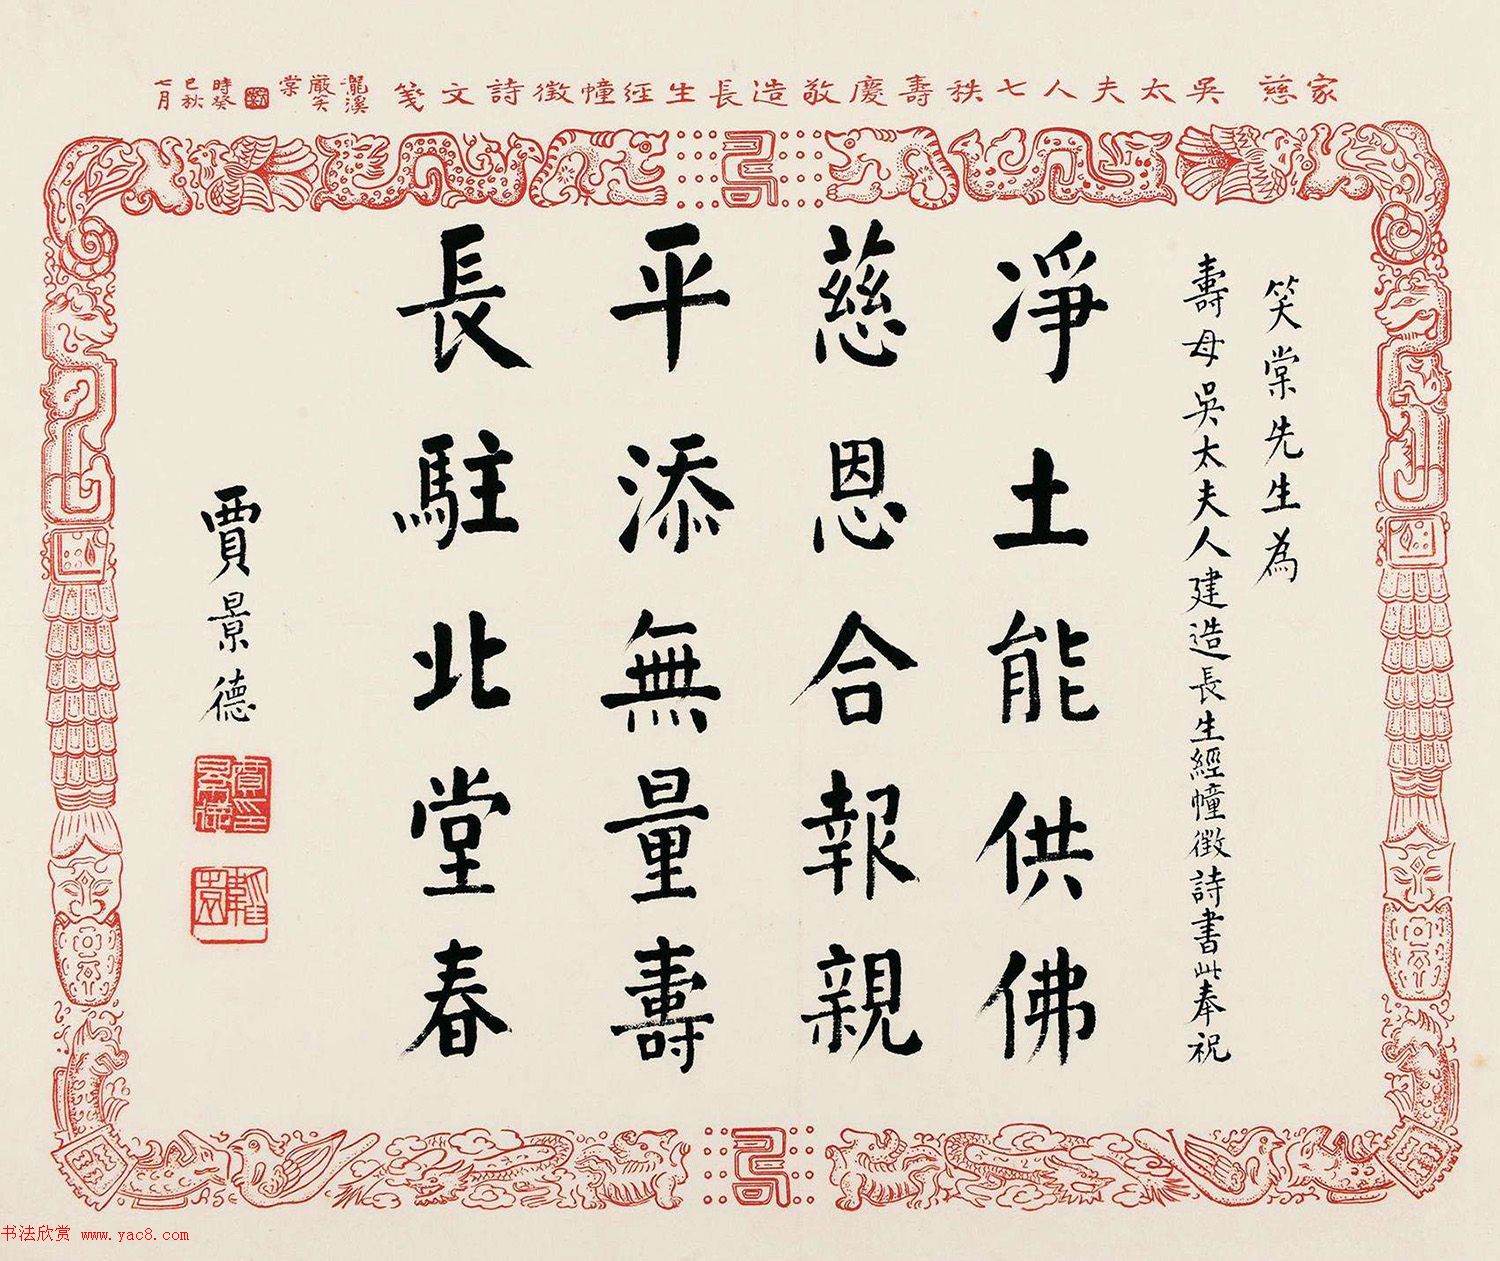 家慈吳太夫人七秩壽慶敬造長生経幢徵詩文箋
瀧溪
嚴笑
棠
時癸
巳秋
七月
笑棠先生為
壽母吳太夫人建造長生經幢徵詩書此奉祝
淨土能供佛
慈恩合報親
平添無量壽
長駐北堂春
賈景德
书法欣赏 www.yac8.com